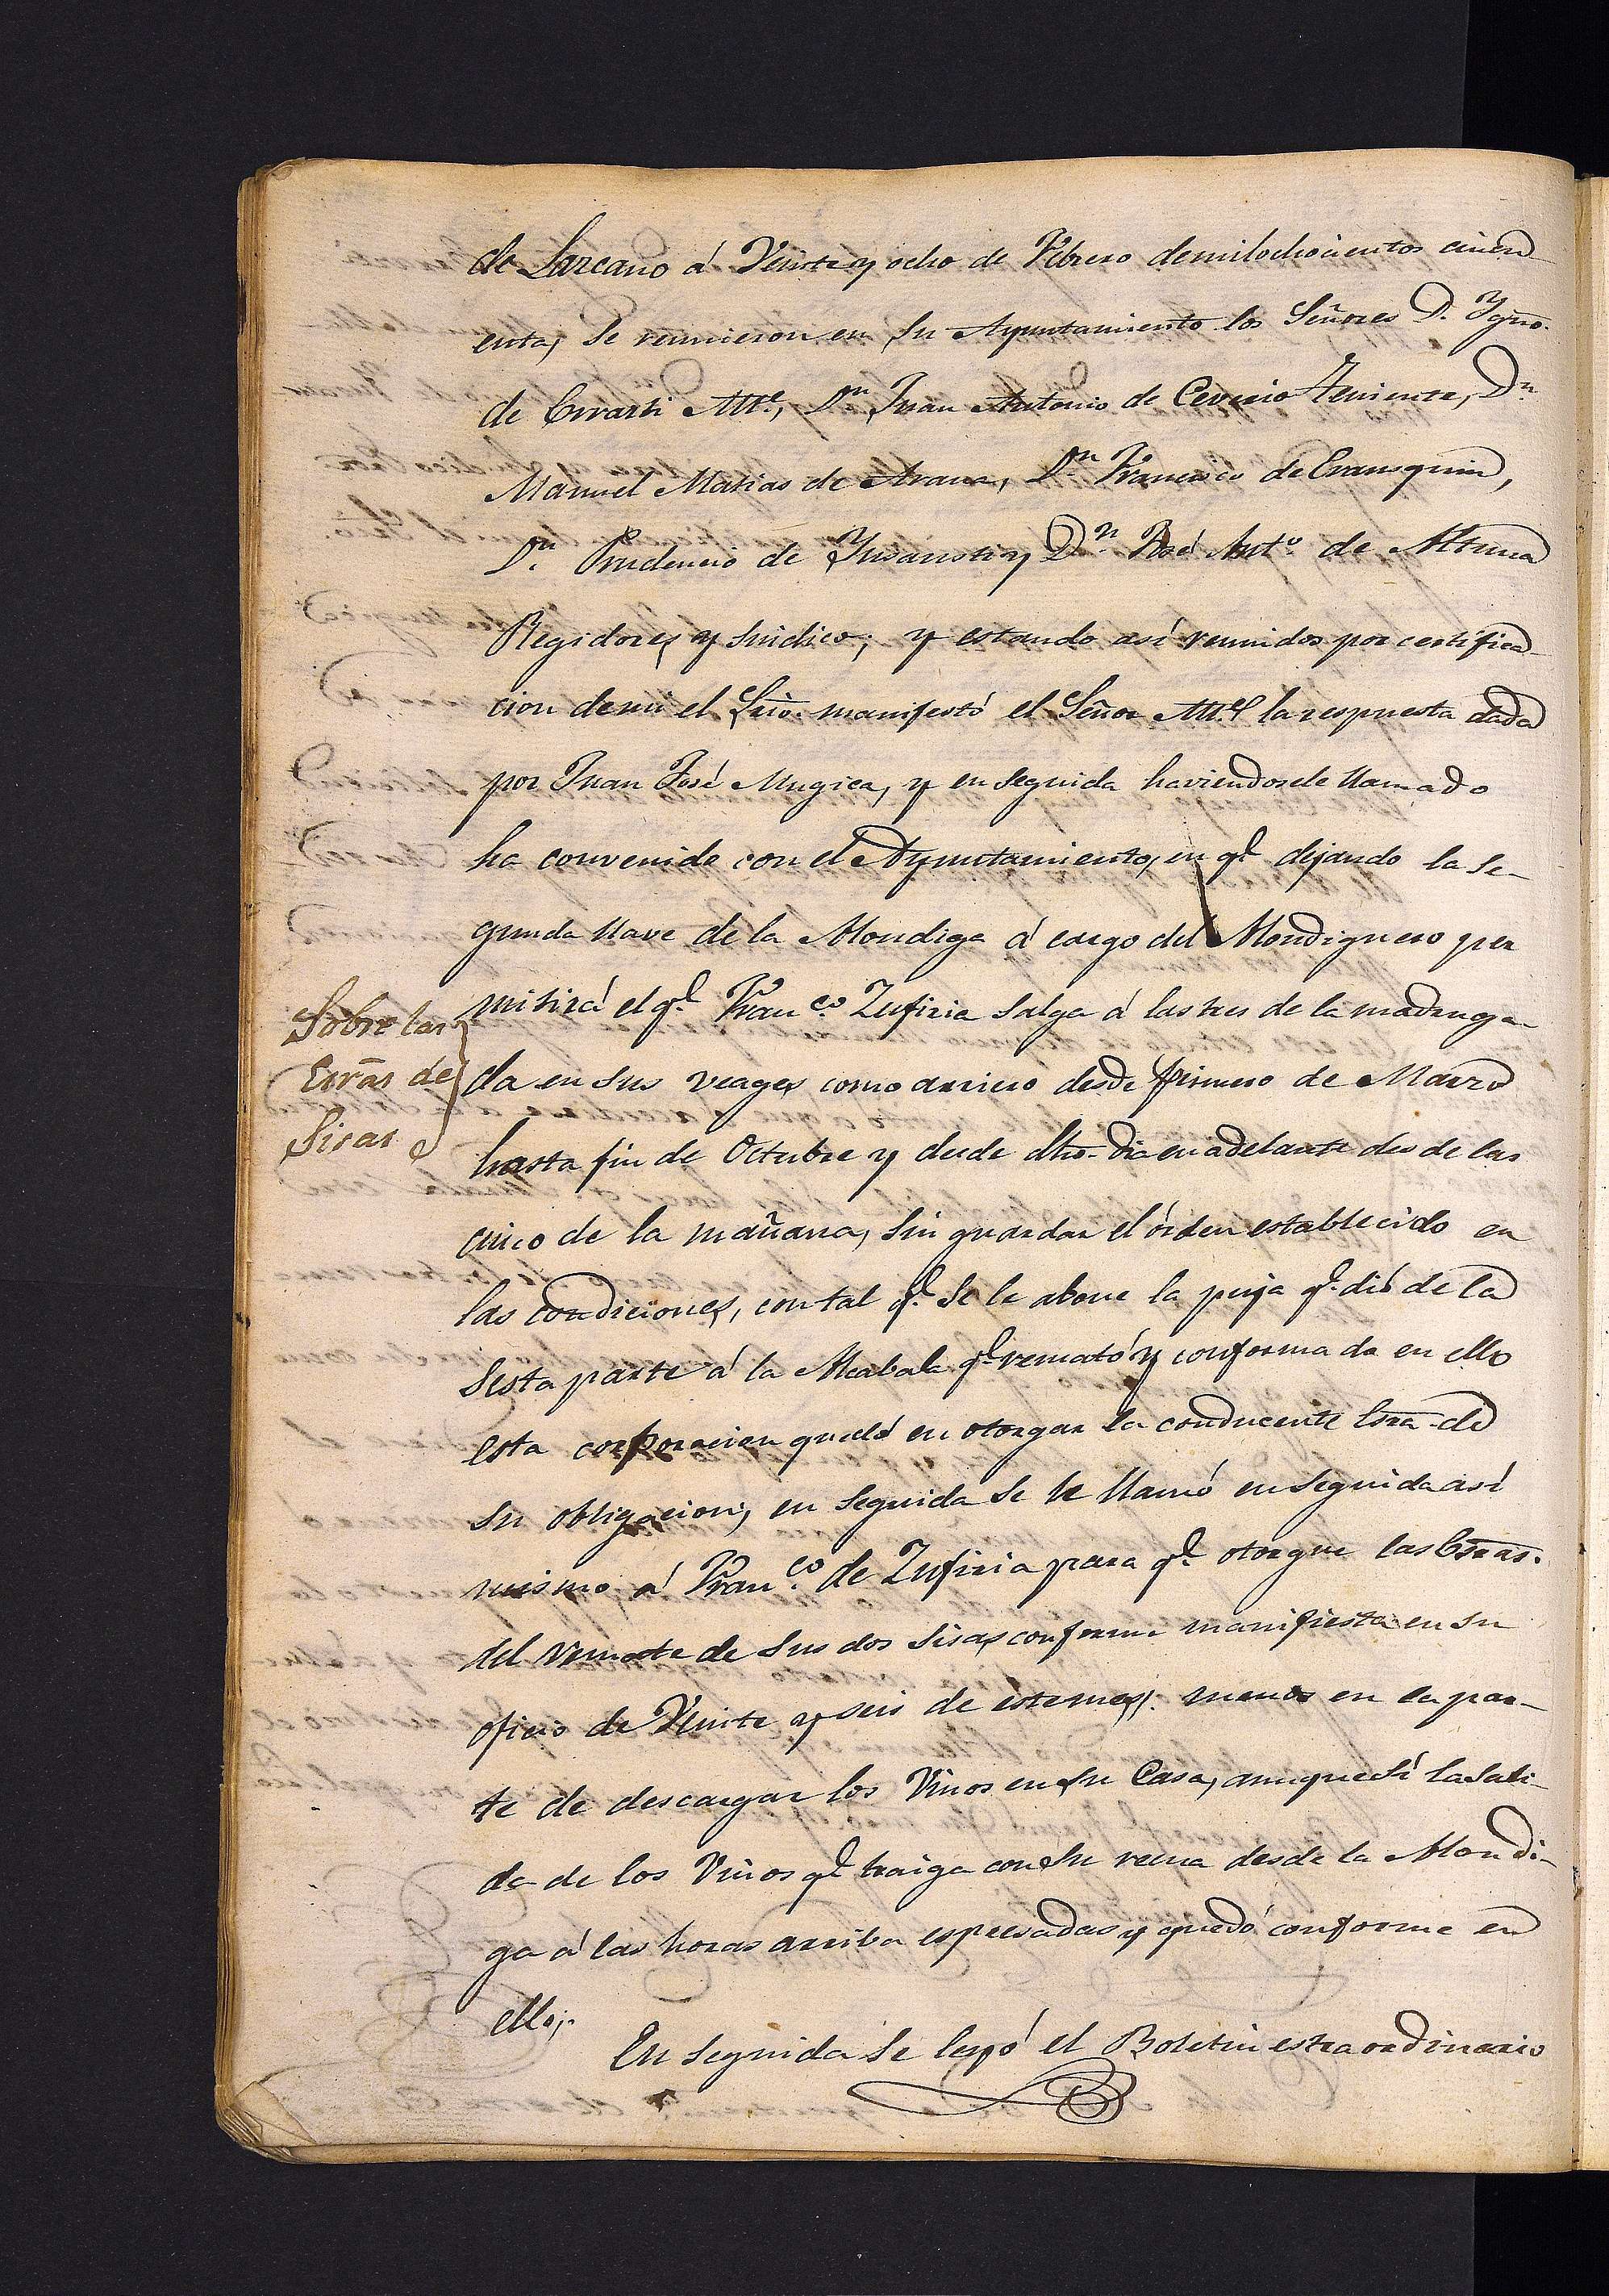 de Lazcano á Veinte y ocho de Febrero de mil ochocientos cincu
enta, se reunieron en su Ayuntamiento los Señores D. Ygno.
de Errasti Alle., Dn Juan Antonio de Cevrio Teniente, Dn
Manuel Matias de Arana, Dn Francisco de Eransquin,
Dn. Prudencio de Insausti y Dn José Anto. de Altuna
Regidores y Sindico; y estando así reunidos por certifica
cion de mi el Srio. manifestó el Señor Alle. la respuesta dada
por Juan José Mugica, y en seguida haviendosele llamado
ha convenido con el Ayuntamiento, en qe. dejando la se-
gunda llave de la Alondiga á cargo del Alondiguero per
mitirá el qe. Franco. Zufiria salga á las tres de la madruga-
Sobre las
Esras de
Sisas
da en sus viages como arriero desde primero de Marzo
hasta fin de Octubre y desde dho. dia en adelante desde las
cinco de la mañana, sin guardar el órden establecido en
las condiciones, con tal qe. se le abone la puja qe. dió de la
sesta parte á la Alcabala qe. remató y conformada en ello
esta corporacion quedó en otorgar la conducente Esra. de
su obligacion; en seguida se le llamó en seguida así
mismo á Franco. de Zufiria para qe. otorgue las Esras.
del remate de sus dos Sisas, conforme manifiesta en su
oficio de Veinte y seis de este mes; menos en la par-
te de descargar los Vinos en su Casa, aunque sí la sali-
da de los Vinos qe. traiga con su recua desde la Alondi-
ga á las horas arriba espresadas y quedó conforme en
ello;.
En seguida se leyó el Boletin estraordinario